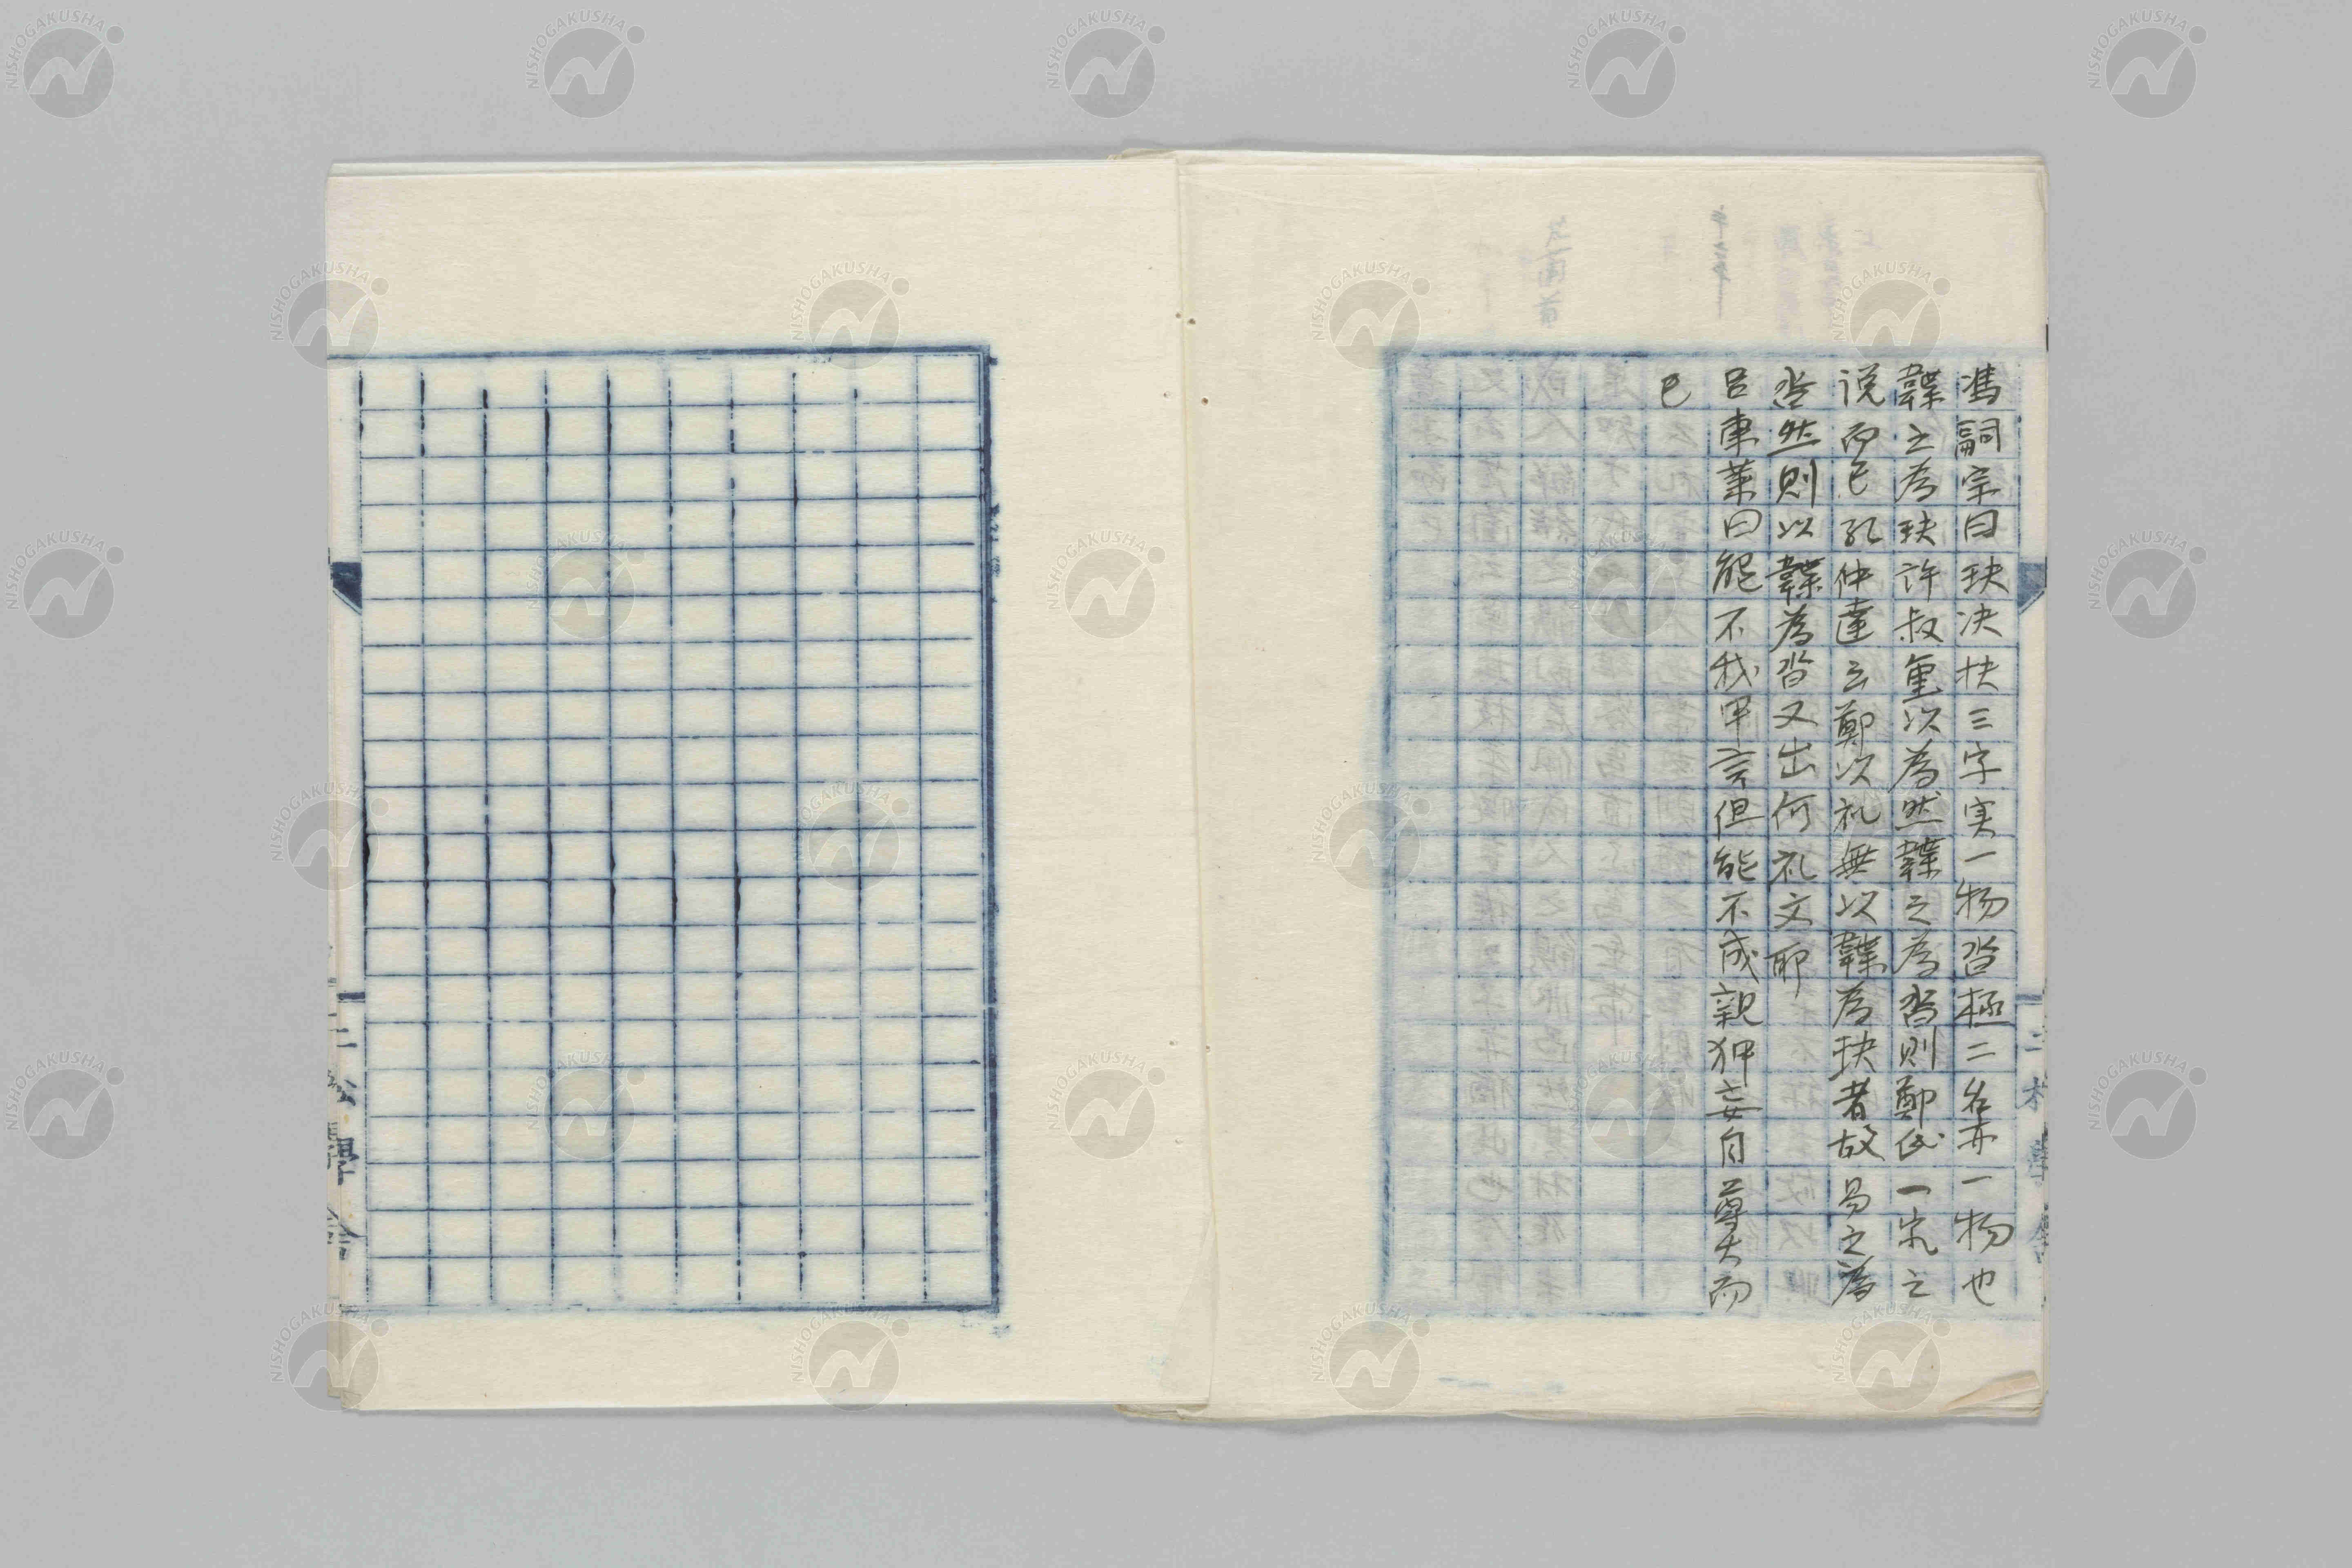 馮嗣宗曰玦决抉三字実一物沓極二名亦一物也
韘之為玦許叔重以為然韘之為沓則鄭氏一家之
説而已孔仲達云鄭以礼無以韘為玦者故易之為
沓然則以韘為沓又出何礼文耶
呂東萊曰能不我甲言但能不成親狎妄自尊大而
已
二松學舍
NISHOGAKUSHA